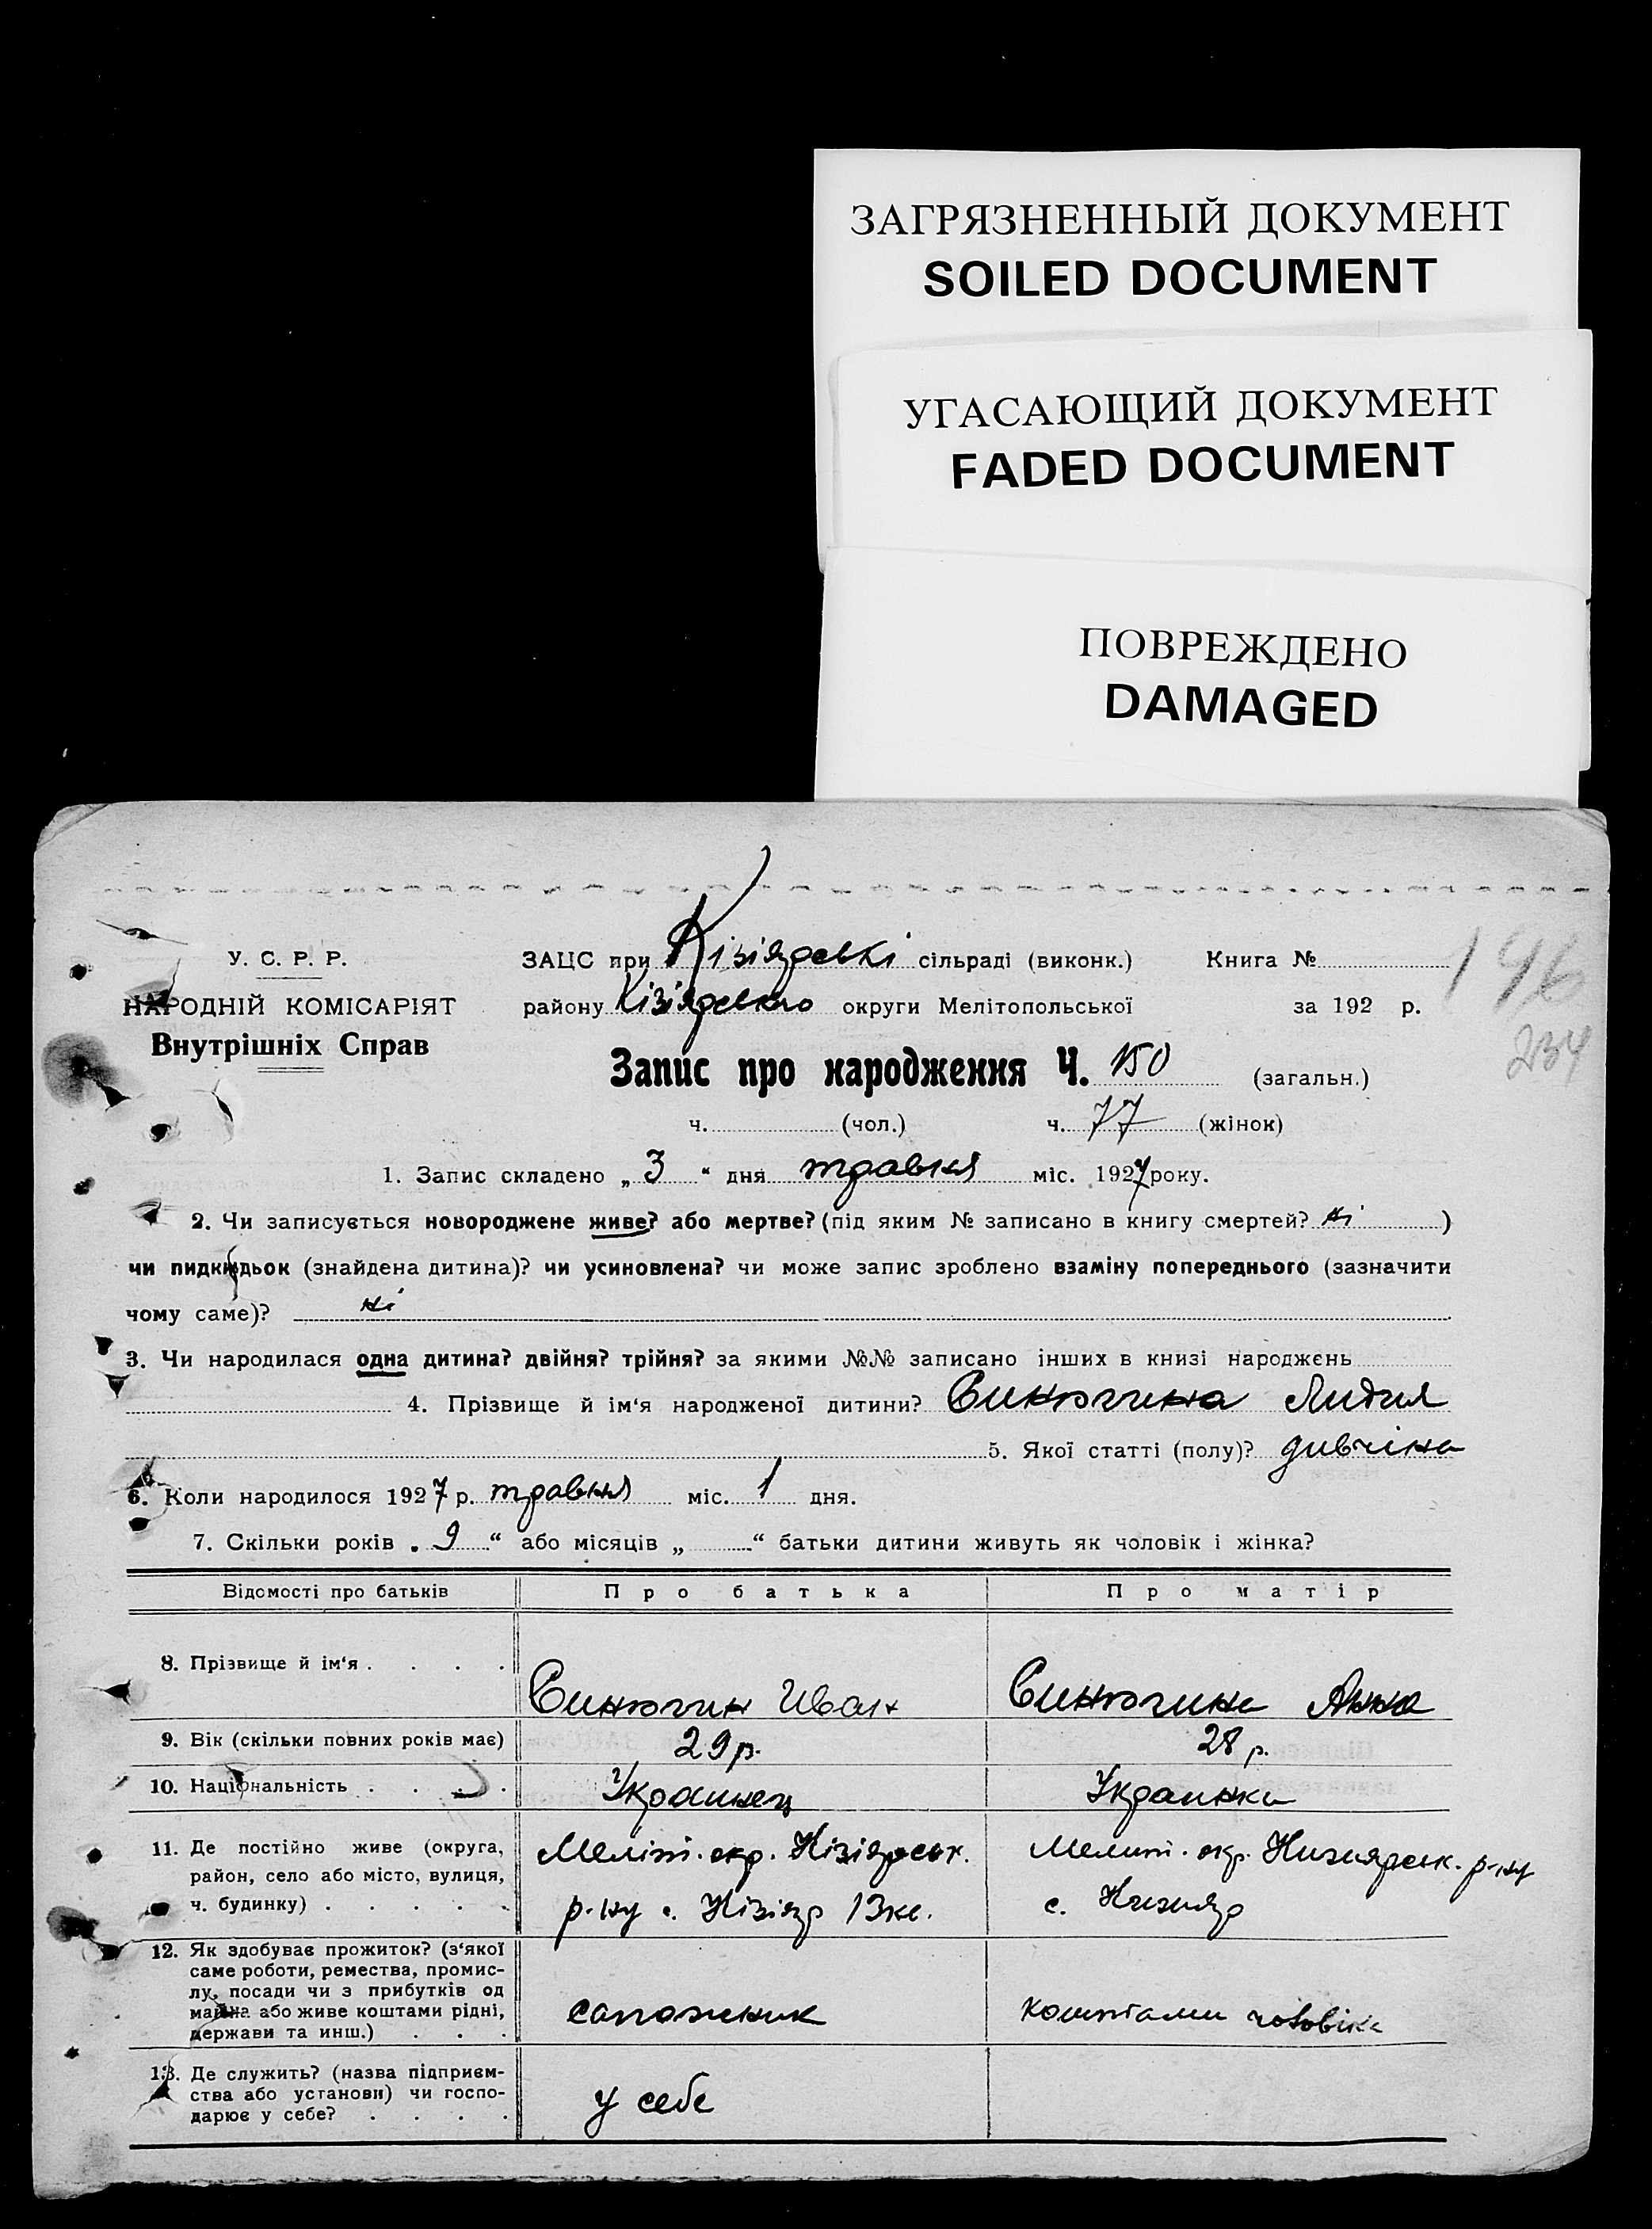 ЗАГРЯЗНЕННЫЙ ДОКУМЕНТ
SOILED DOCUMENT
УГАСАЮЩИЙ ДОКУМЕНТ
FADED DOCUMENT
ПОВРЕЖДЕНО
DAMAGED
У. С. Р. Р.
НАРОДНІЙ КОМІСАРІЯТ
Внутрішніх Справ
ЗАЦС при Кізіярські сільраді (виконк.) Книга №
196
району Кізіярського округи Мелітопольської за 192 р.
234
Запис про народження Ч. 150 (загальн.)
ч. (чол.) ч. 77 (жінок)
1. Запис складено „ 3 “ дня травня міс. 1927 року.
2. Чи записується новороджене живе? або мертве? (під яким № записано в книгу смертей? ні )
чи пидкидьок (знайдена дитина)? чи усиновлена? чи може запис зроблено взаміну попереднього (зазначити
чому саме)? ні
3. Чи народилася одна дитина? двійня? трійня? за якими №№ записано інших в книзі народжень
4. Прізвище й ім‘я народженої дитини? Синюгина Лидия
5. Якої статті (полу)? дивчіна
6. Коли народилося 1927 р. травня міс. 1 дня.
7. Скільки років „ 9 “ або місяців „ “ батьки дитини живуть як чоловік і жінка?
Відомості про батьків Про батька Про матір
8. Прізвище й ім‘я . . . . Синюгин Иван Синюгина Анна
9. Вік (скільки повних років має) 29 р. 28 р.
10. Національність . . . . Украинец Украинка
11. Де постійно живе (округа,
район, село або місто, вулиця,
ч. будинку) . . . . .
Меліт. окр. Кізіярськ.
р-ну с. Кізіяр 13 кв.
Мелит. окр. Кизиярск. р-ну
с. Кизияр
12. Як здобуває прожиток? (з‘якої
саме роботи, ремества, промис-
лу, посади чи з прибутків од
майна або живе коштами рідні,
держави та инш.) . . .
сапожник
коштами чоловіка
13. Де служить? (назва підприєм-
ства або установи) чи госпо-
дарює у себе? . . . .
у себе